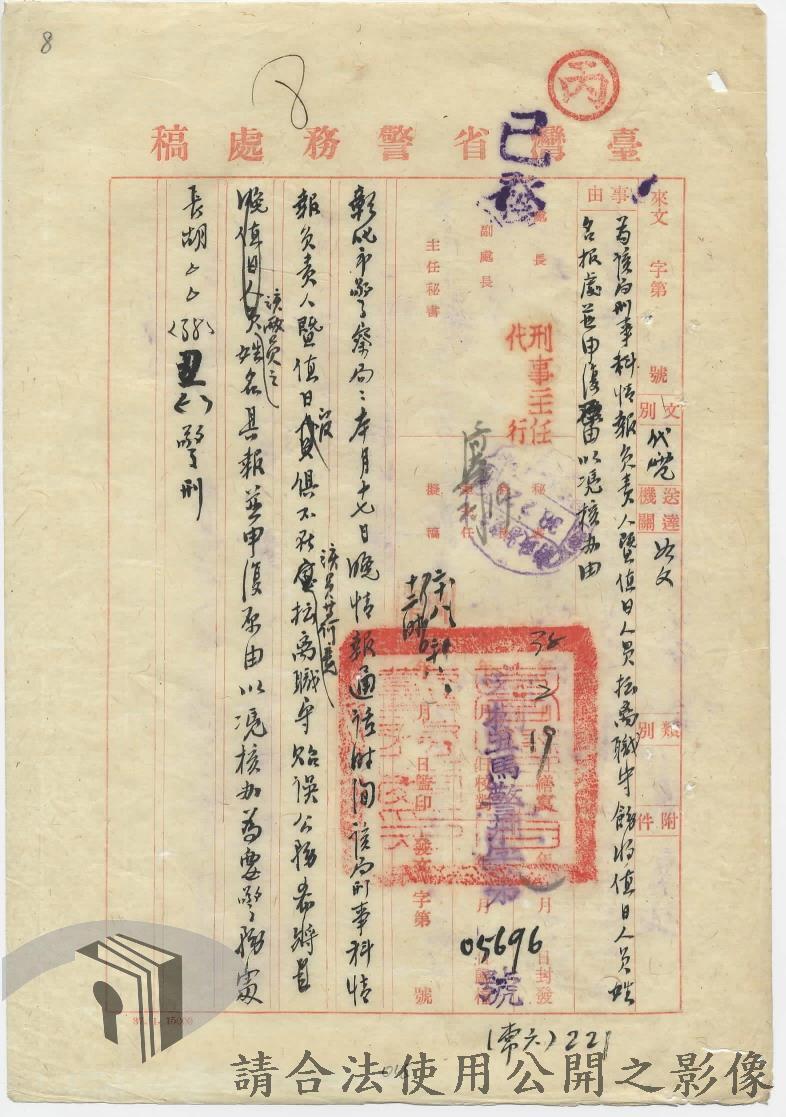 8
8
丙
臺灣省警務處稿
已發
來文 字第 號
文別 代電
送達機關 如文
類別
附件
事由
為該局刑事科情報負責人暨值日人員擅離職守飭將值日人員姓
名報處並申復理由以憑核辦由
處長
副處長
主任秘書
刑事主任
代行
秘
擬稿
38
2
19
繕寫
年 月 日封發
月 日校
月 日簽印
發文 字第 號
05696
號
彰化市警察局:本月十七日晚情報通話時間該局刑事科情
報負責人暨值日員俱不在
擅離職守貽誤公務希將
該兩員之
晚值日人員姓名具報並申復原由以憑核辦為要警務處
長胡
(38)丑 警刑
(常六)221
37. 1. 15000
請合法使用公開之影像